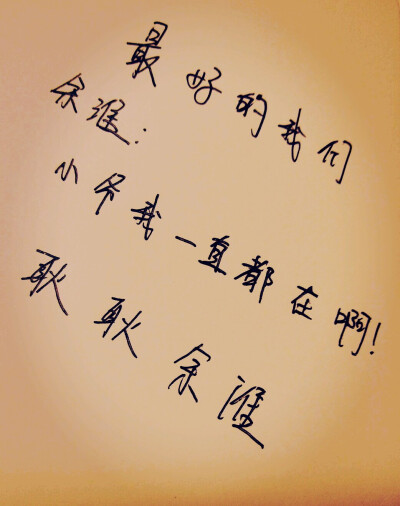 最好的我们
余淮：
小爷我一直都在啊！
耿耿余淮